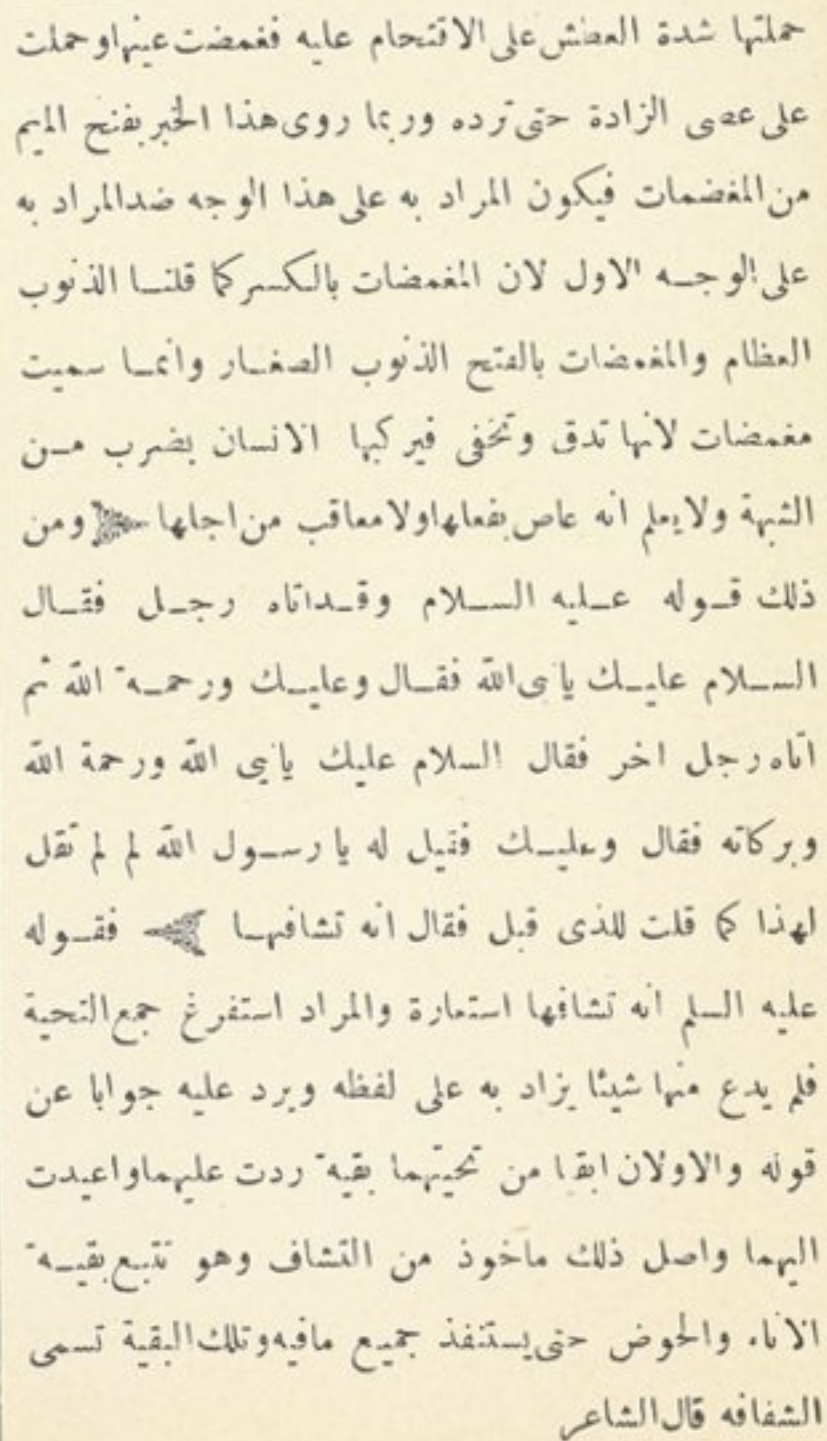 حملتها شدة العطش على الاقتحام عليه فغمضت عينها وحملت
على عصى الزادة حتى ترده وربما روى هذا الخبر بفتح الميم
من المغضمات فيكون المراد به على هذا الوجه ضد المراد به
على الوجه الاول لان المغمضات بالكسر كما قلنا الذنوب
العظام والمغمضات بالفتح الذنوب الصغار وانما سميت
مغمضات لانها تدق وتخفى فيركبها الانسان بضرب من
الشبهة ولا يعلم انه عاص بفعلها ولا معاقب من اجلها ومن
ذلك قوله عليه السلام وقد اتاه رجل فقال
السلام عليك يا نبى الله فقال وعليك ورحمة الله ثم
اتاه رجل اخر فقال السلام عليك يا نبى الله ورحمة الله
وبركاته فقال وعليك فقيل له يا رسول الله لم لم تقل
لهذا كما قلت للذى قبل فقال انه تشافها فقوله
عليه السلم انه تشافها استعارة والمراد استفرغ جمع التحية
فلم يدع منها شيئا يزاد به على لفظه ويرد عليه جوابا عن
قوله والاولان ابقا من تحيتهما بقية ردت عليهما واعيدت
اليهما واصل ذلك ماخوذ من التشاف وهو تتبع بقية
الاناء والحوض حتى يستنفذ جميع مافيه وتلك البقية تسمى
الشفافه قال الشاعر